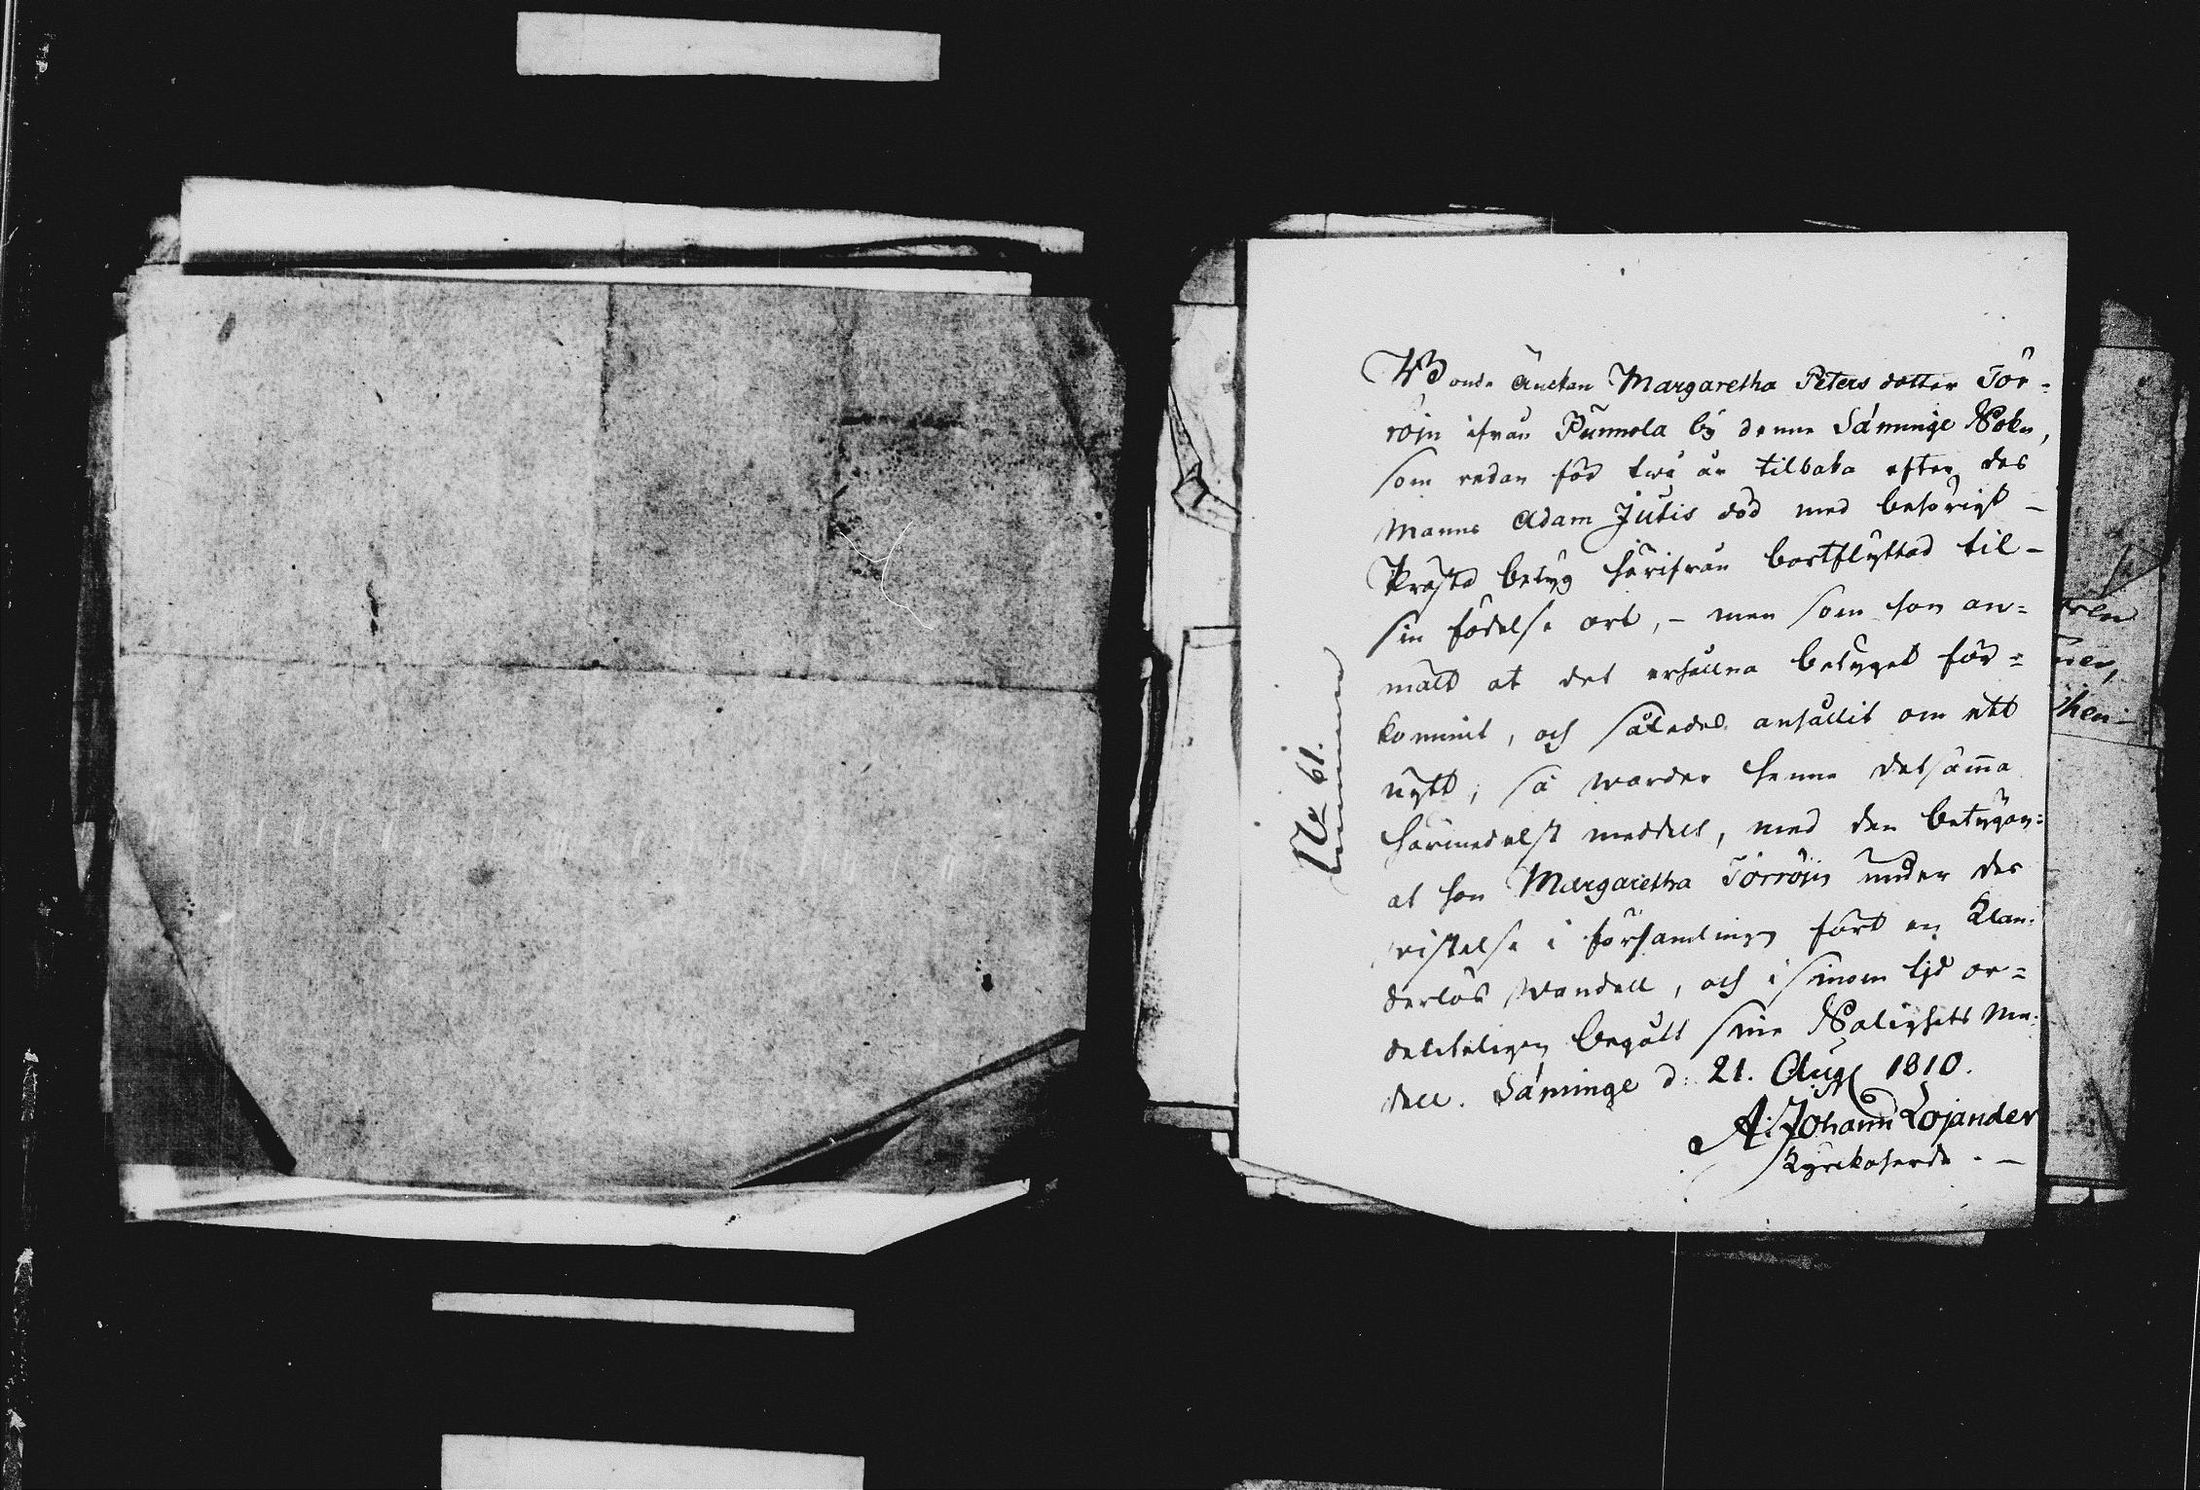 Bonde Änckan Margaretha Peters dotter Tör=
röin ifrån Punnola bÿ denne Säminge Sokn,
som redan för twå år tilbaka efter des
Manns Adam Jutis död med behörigt –
Prästa betyg härifrån bortflyttad til –
sin födelse ort, – men som hon an=
mält at det erhållna betyget för=
kommit, och således anhållit om ett
nytt, så warder henne detsamma
härmedelst meddelt, med den betygan:
at hon Margaretha Törröin under des
vistelse i församlingen fört en Klan:
derlös Wandell, och i sinom tid or=
denteligen begått sine Salighets Me:
dell. Säminge d: 21. Aug 1810.
A: Johann Lojander
Kyrckoherde. –
No 61.